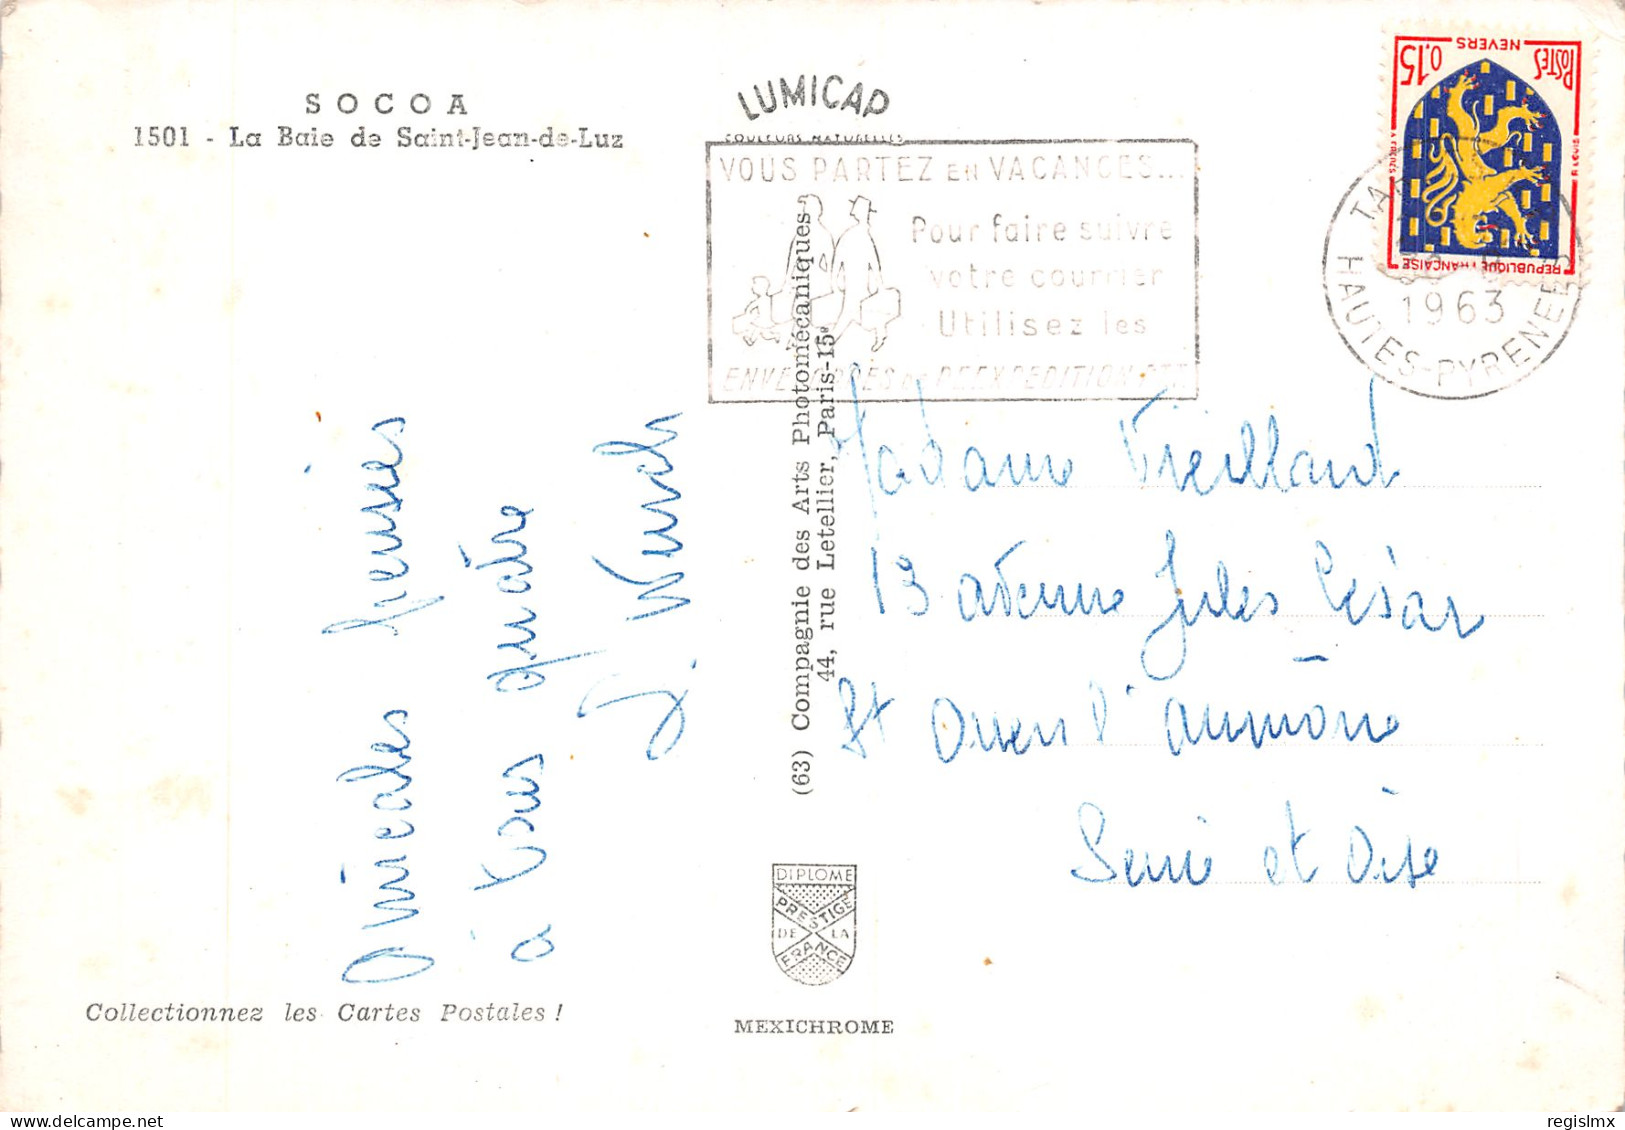 SOCOA
1501 - La Baie de Saint-Jean-de-Luz
LUMICAP
COULEURS NATURELLES
VOUS PARTEZ EN VACANCES...
Pour faire suivre
votre courrier
Utilisez les
ENVELOPPES DE REEXPEDITION PTT
0,15
NEVERS
POSTES
REPUBLIQUE FRANÇAISE
HAUTES-PYRENEES
1963
Amicales pensées
à tous quatre
(63) Compagnie des Arts Photomécaniques
44, rue Letellier, Paris-15e
Madame Vieillard
13 avenue Jules César
St Ouen l'aumône
Seine et Oise
DIPLOME
PRESTIGE
DE LA
FRANCE
Collectionnez les Cartes Postales !
MEXICHROME
regislmx